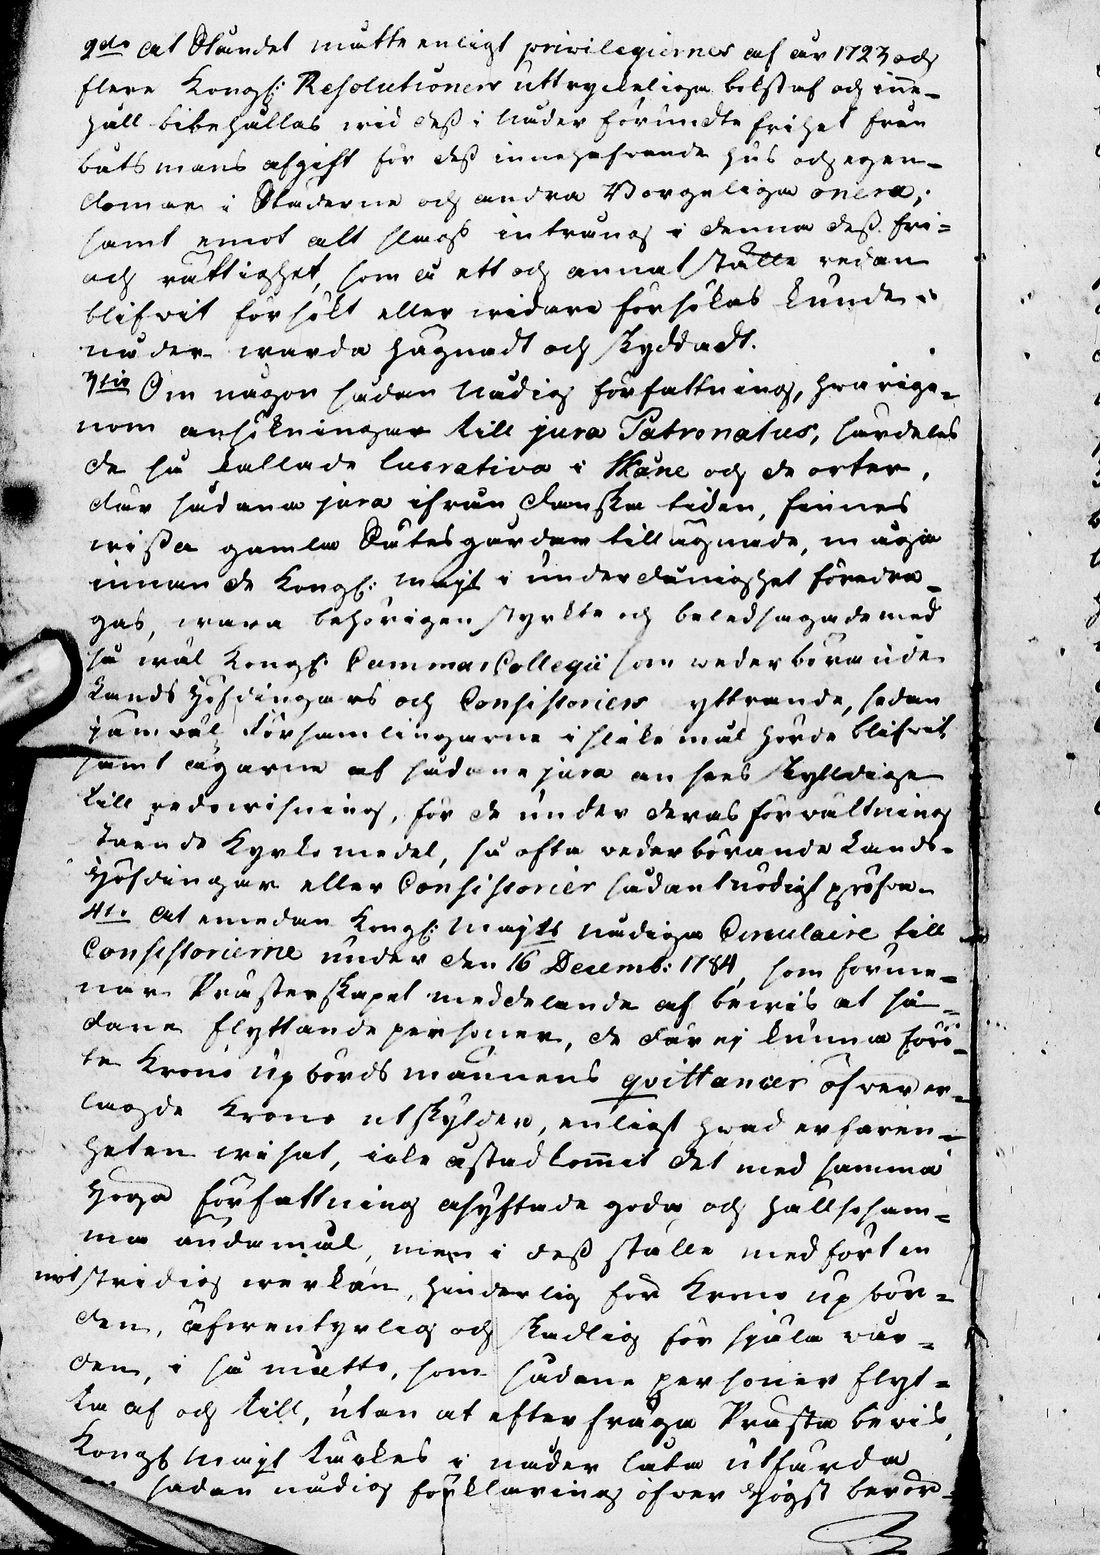 2do at Ståndet måtte enligt privilegiernes af år 1723 och
flere Kongl: Resolutioners uttryckeliga bokstaf och inne-
håll bibehållas wid dess i nåder förundte frihet från
båtsmans afgift för dess innehafwande hus och egen-
domar i Städerne och andra Borgerliga onera;
samt emot alt slags intrång i denna dess fri-
och rättighet, som å ett och annat ställe redan
blifwit försökt eller widare försökas kunde i
nåder warda hägnadt och skyddadt.
3tio Om någon sådan Nådig författning, hwarige-
nom ansökningar till jura Patronatus, särdeles
de så kallade lucrativa i Skåne och de orter,
där sådana jura ifrån Danska tiden, finnes
wissa gamla Sätesgårdar tillägnade, måga
innan de Kongl: Majt i underdånighet föredra-
gas, wara behörigen styrkte och beledsagade med
så wäl Kongl: Cammar Collegii som wederbörande
Lands Höfdingars och Consistoriers yttrande, sedan
jämwäl Församlingarne i slike mål hörde blifwit
samt ägarne af sådane jura anses skylldige
till redowisning, för de under deras förwaltning
stående Kyrko medel, så ofta wederbörande Lands-
Höfdingar eller Consistorier sådant nödigt pröfwa.
4to At emedan Kongl: Majts nådiga Circulaire till
Consistorierne under den 16 Decemb: 1784, som förme-
nar Prästerskapet meddelande af bewis at så-
dane flyttande personer, de där ej kunna före-
te Krono upbördsmännens quittancer öfwer er-
lagde Krono utskylder, enligt hwad erfaren-
heten wisat, icke åstadkommit det med samma
Höga författning åsyftade goda och hällsosam-
ma ändamål, men i dess ställe medfört en
motstridig werkan, hinderlig för Krono upbör-
den, äfwentyrlig och skadlig för själa wår-
den, i så måtto, som sådane personer flyt-
ta af och till, utan at efterfråga Prästa bewis,
Kongl Majt täcktes i nåder låta utfärda
en sådan nådig förklaring öfwer Högst beröd-